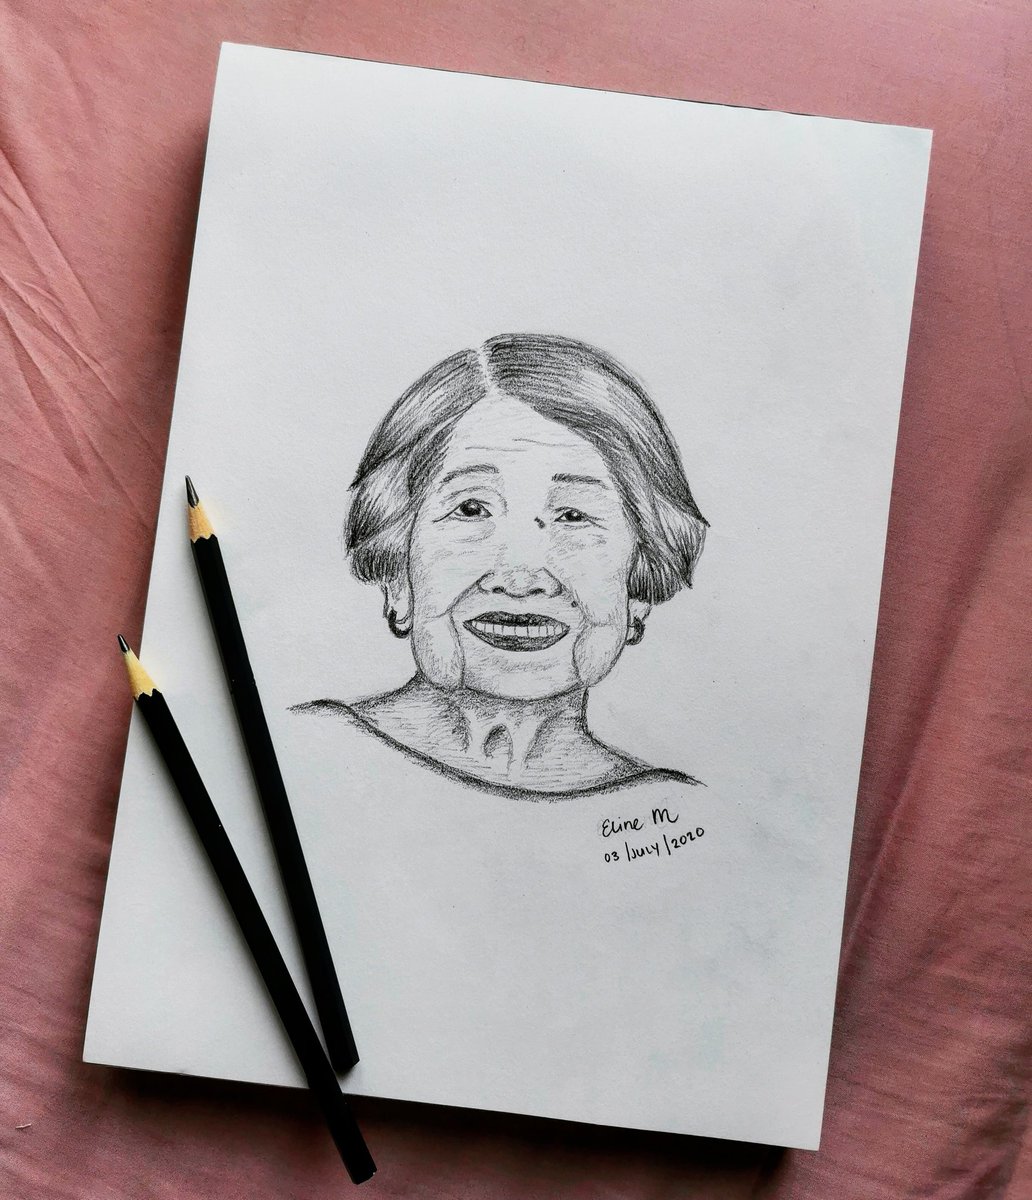 Eline M
03/JULY/2020